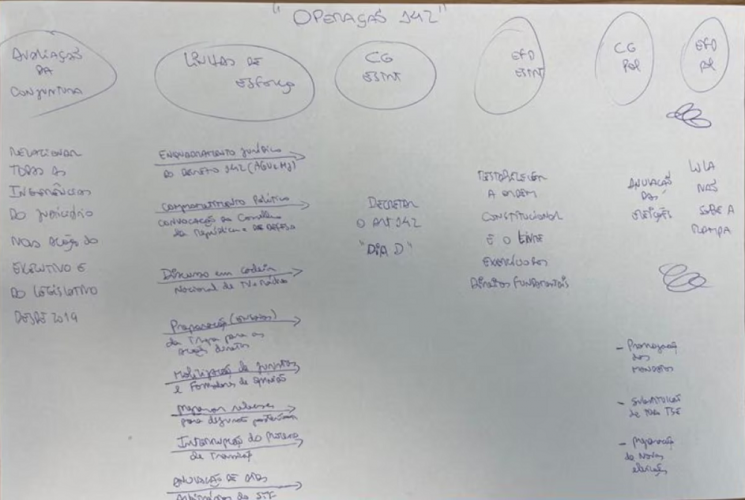 "OPERAÇÃO 142"
AVALIAÇÃO
DA
CONJUNTURA
RELACIONAR
TODAS AS
INTERFERÊNCIAS
DO JUDICIÁRIO
NAS AÇÕES DO
EXECUTIVO E
DO LEGISLATIVO
DESDE 2019
LINHAS DE
ESFORÇO
ENQUADRAMENTO JURÍDICO
DO DECRETO 142 (AGU e MJ)
Comprometimento Político
CONVOCAÇÃO do Conselho
da República e DE DEFESA
Discurso em cadeia
Nacional de TV e Rádio
Preparação
da Tropa para as
ações diretas
Mobilização de juristas
e Formadores de opinião
Preparar
para
Interrupção do Processo
de Transição
ANULAÇÃO DE ATOS
Arbitrários do STF
CG
ESTRT
DECRETAR
O ART 142
"DIA D"
EFD
ESTRT
RESTABELECER
A ORDEM
CONSTITUCIONAL
E O LIVRE
EXERCÍCIO DOS
DIREITOS FUNDAMENTAIS
CG
POL
ANULAÇÃO
DAS
ELEIÇÕES
- Prorrogação
dos
MANDATOS
- SUBSTITUIÇÃO
DE TODO TSE
- PREPARAÇÃO
DE NOVAS
eleições
EFD
POL
LULA
NÃO
SOBE A
RAMPA